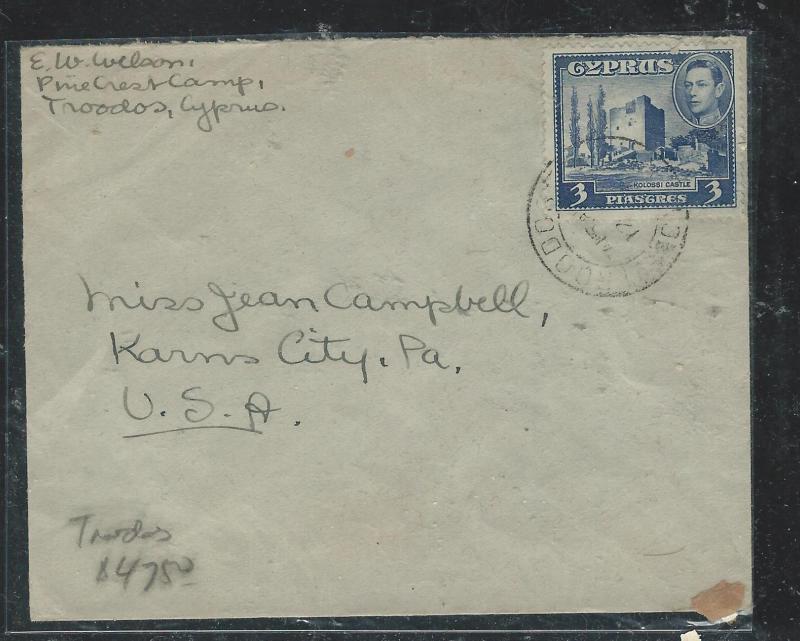 E. W. Wilson,
Pine Crest Camp,
Troodos, Cyprus.
CYPRUS
KOLOSSI CASTLE
3 PIASTRES 3
TROODOS
Miss Jean Campbell,
Karns City, Pa,
U.S.A.
Troodos